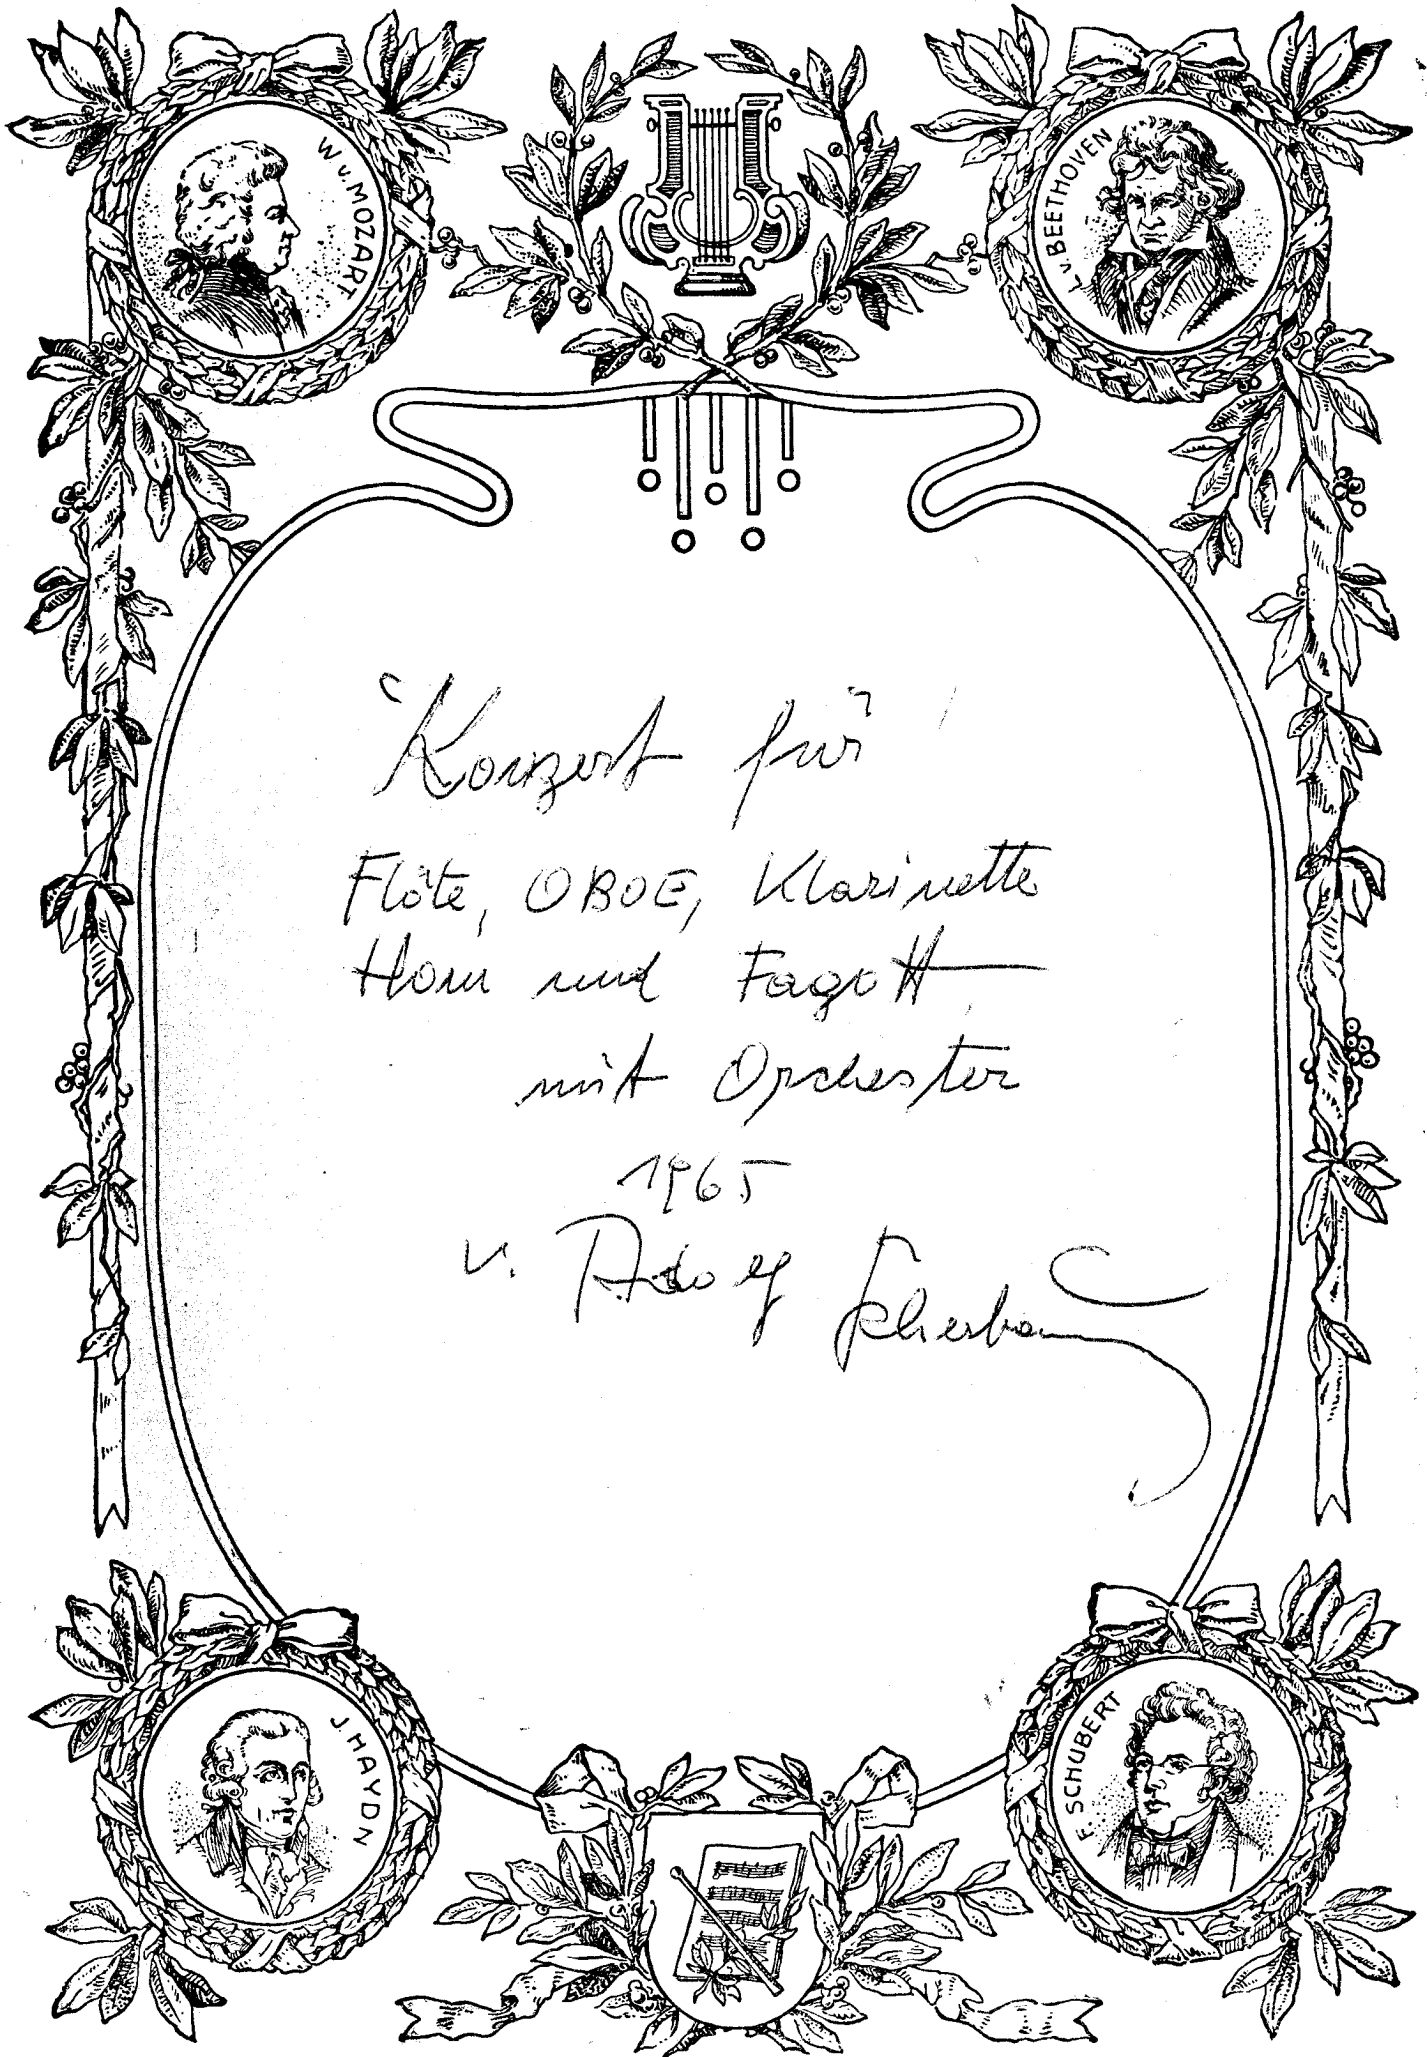 W. v. MOZART
L. v. BEETHOVEN
Konzert für
Flöte, OBOE, Klarinette
Horn und Fagott
mit Orchester
1965
v. Adolf Scherbaum
J. HAYDN
F. SCHUBERT